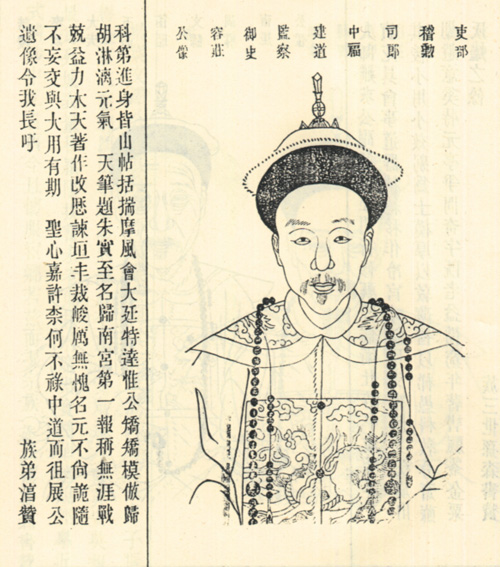 吏部
稽勳
司郎
中福
建道
監察
御史
容莊
公像
科第進身皆山帖括揣摩風會大廷特達惟公矯矯模倣歸
胡淋漓元氣 天筆題朱實至名歸南宮第一報稱無涯戰
兢益力木天著作改歷諫垣丰裁峻厲無愧名元不尙詭隨
不妄交與大用有期 聖心嘉許柰何不祿中道而徂展公
遺像令我長吁 族弟 贊